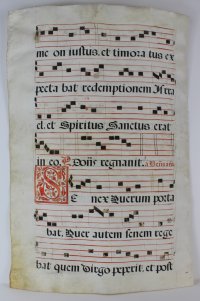 me on iustus. et timora tus ex
pecta bat redemptionem Isra
el. et Spiritus Sanctus erat
in eo. Dom regnavit.
S e nex Puerum porta
bat. Puer autem senem rege
bat quem Virgo peperit. et post